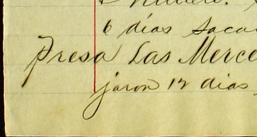 6 días saca
Presa Las Merce
jaron 12 dias